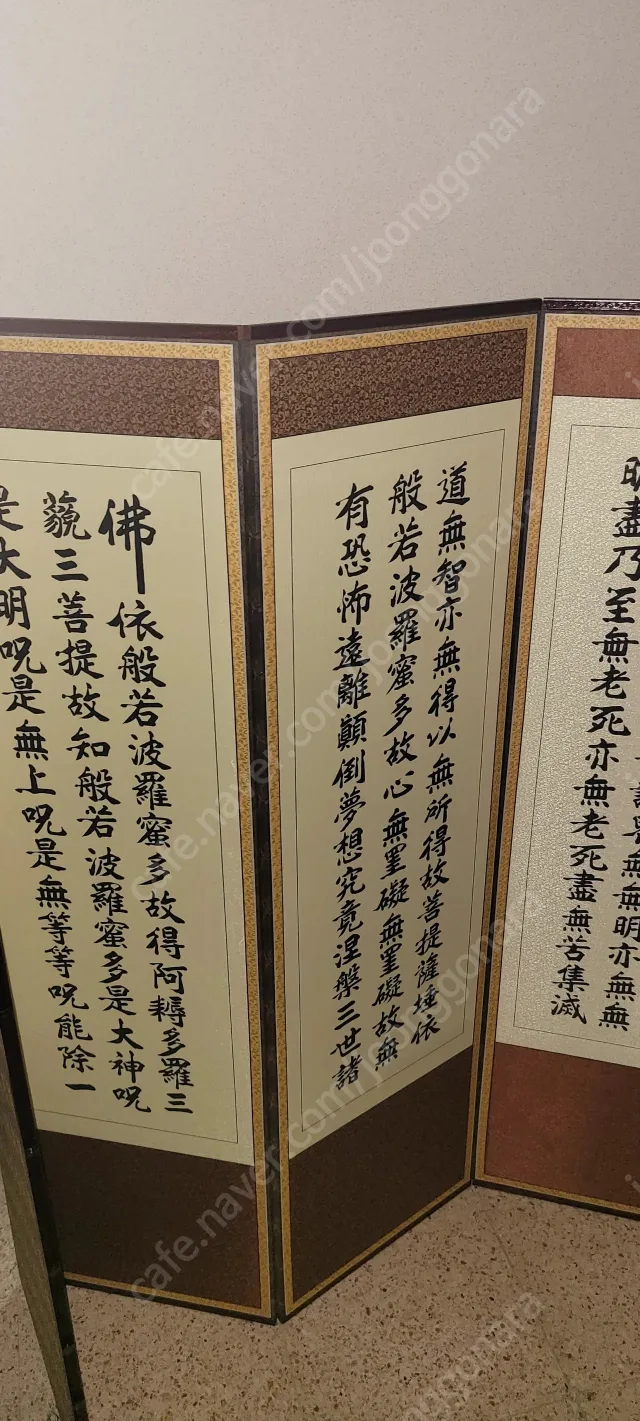 界無無明亦無無
明盡乃至無老死亦無老死盡無苦集滅
道無智亦無得以無所得故菩提薩埵依
般若波羅蜜多故心無罣礙無罣礙故無
有恐怖遠離顚倒夢想究竟涅槃三世諸
佛依般若波羅蜜多故得阿耨多羅三
藐三菩提故知般若波羅蜜多是大神呪
是大明呪是無上呪是無等等呪能除一
cafe.naver.com/joonggonara
cafe.naver.com/joonggonara
cafe.naver.com/joonggonara
cafe.naver.com/joonggonara